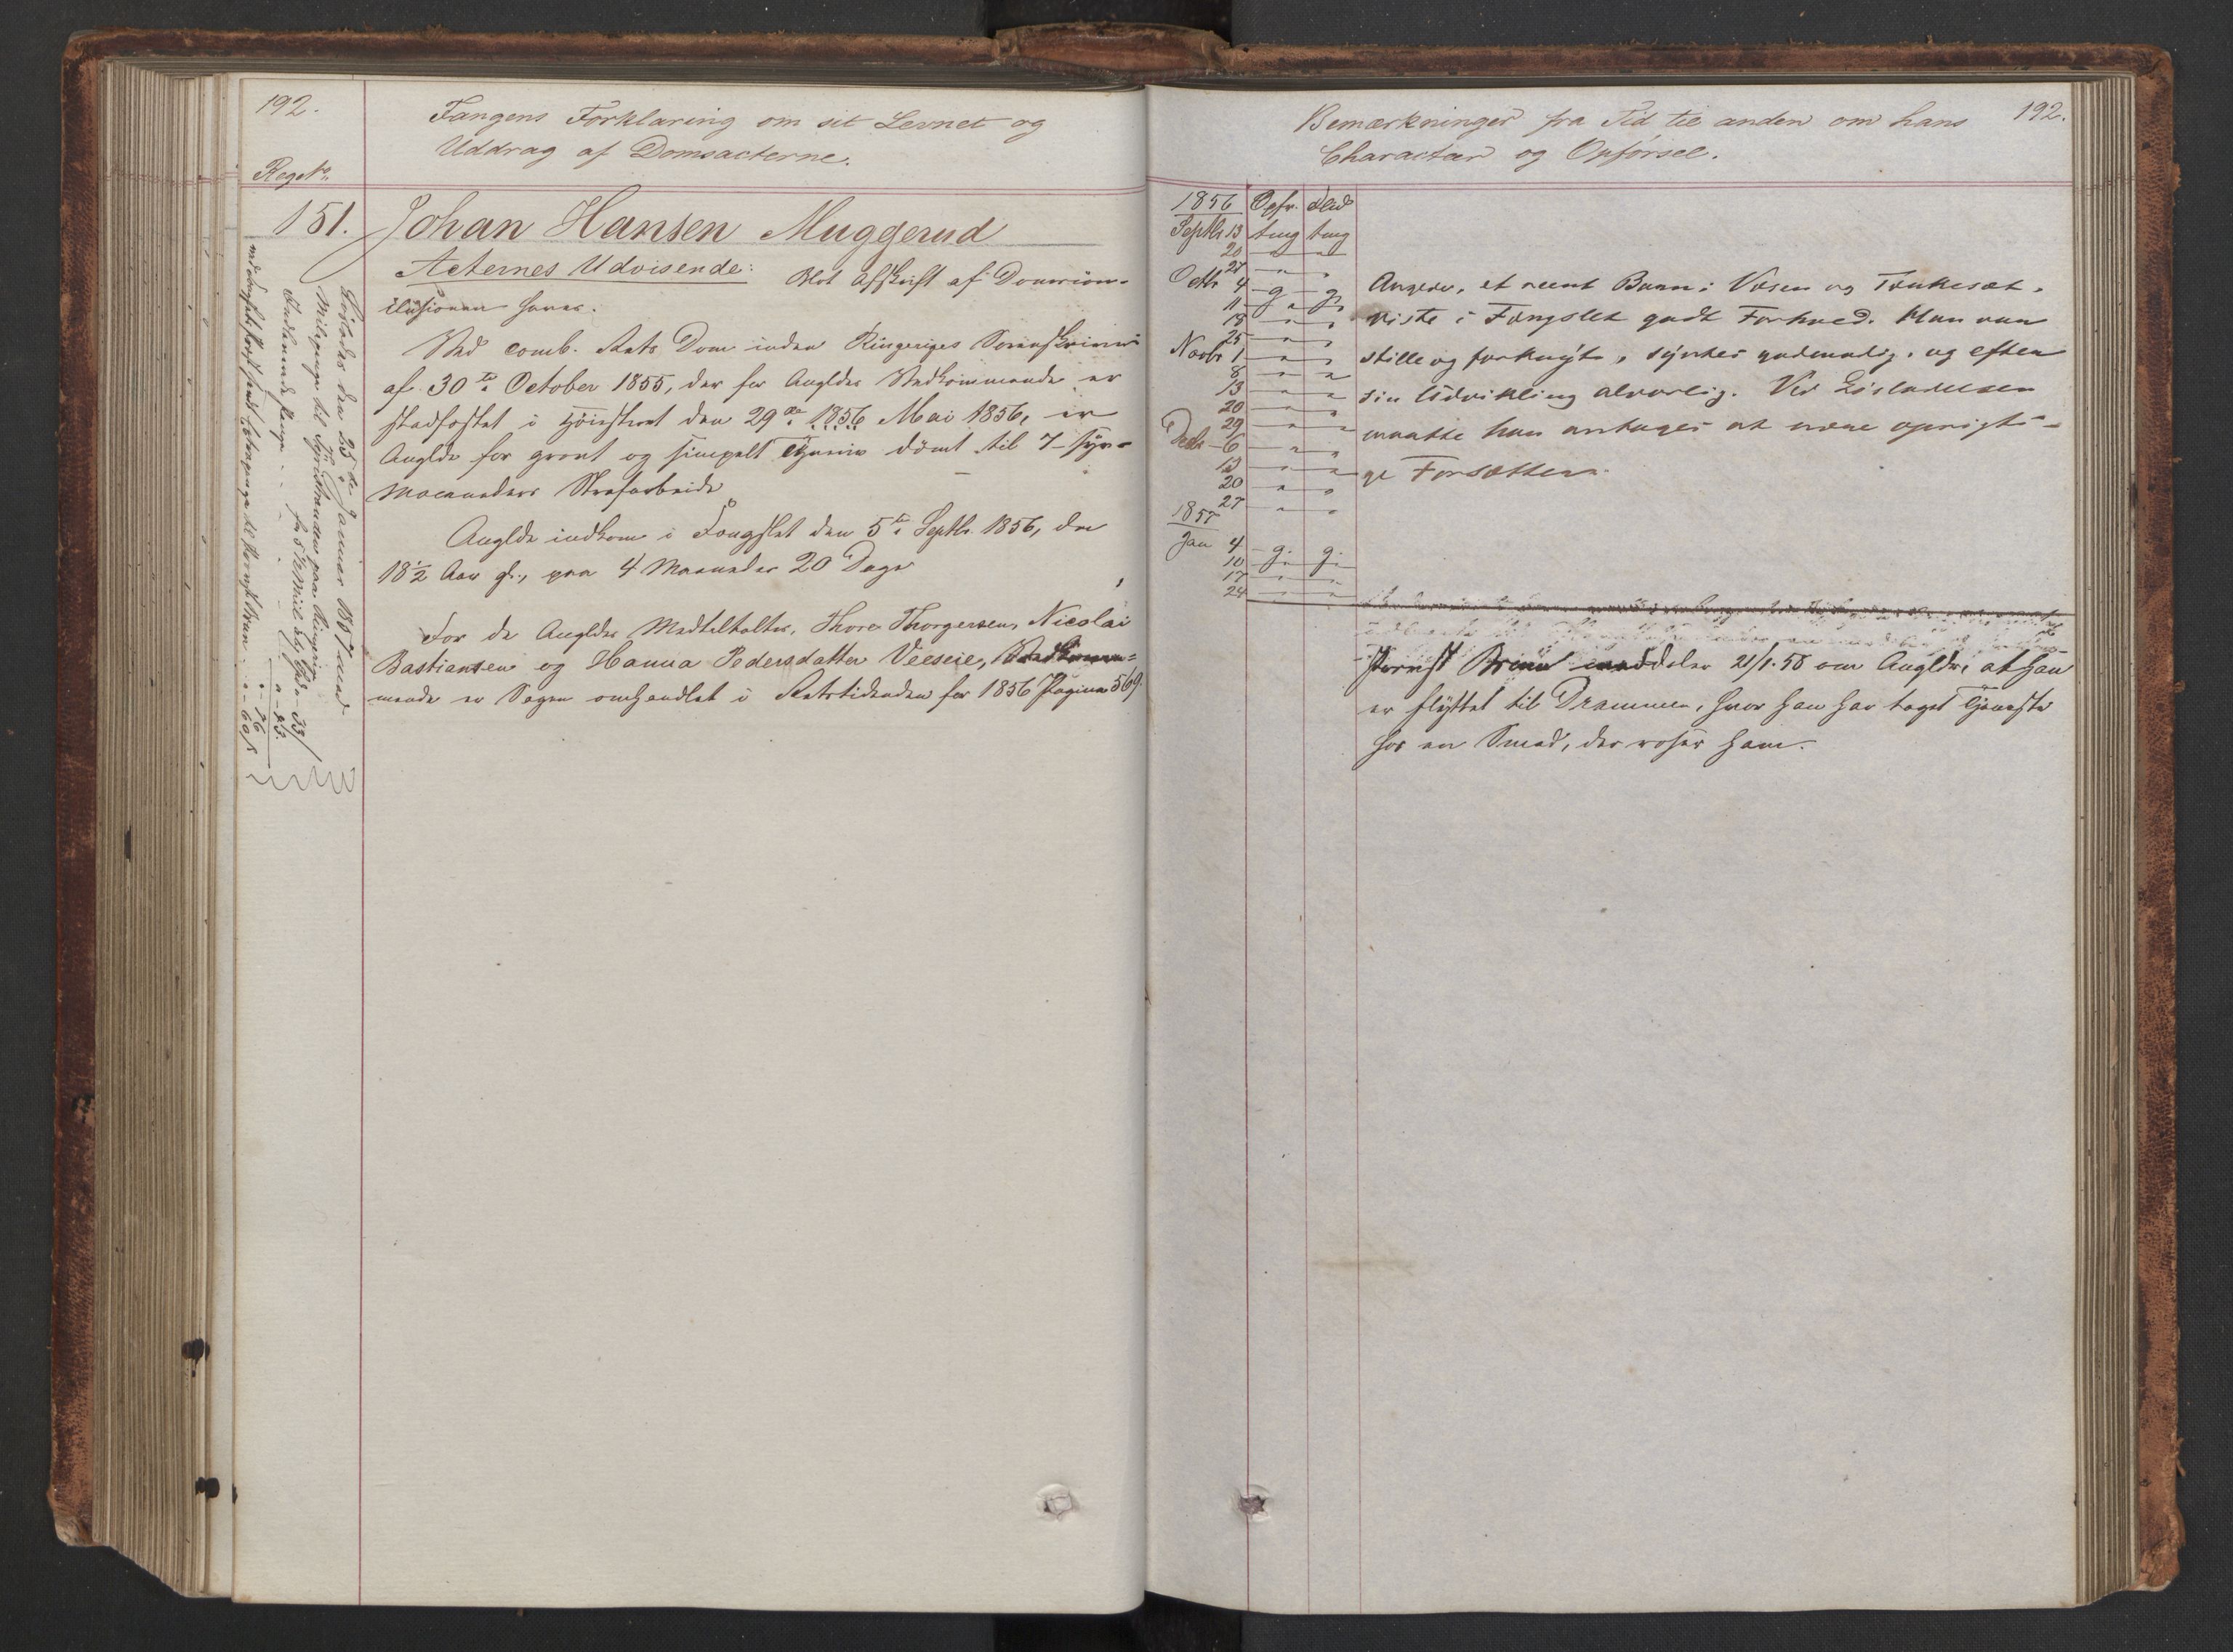 192.
Fangens Forklaring om sit Levnet og
Uddrag af Domsacterne.
Reg No.
151. Johan Hansen Muggerud
Acternes Udvisende: Blot Afskrift af Domscon-
clusionen haves.
Ved comb. Rets Dom inden Ringeriges Sorenskriveri
af 30te October 1855, der for Anglds Vedkommende er
stadfæstet i Høiesteret den 29de 1856 Mai 1856, er
Anglde for grovt og simpelt Tyveri dömt til 7 syv
Maaneders Strafarbeide
Anglde indkom i Fængslet den 5te Septbr. 1856, da
18½ Aar gl., paa 4 Maaneder 20 Dage
For de Anglds Medtiltalte, Thore Thorgersen, Nicolai
Bastiansen og Hanna Pedersdatter Veeseie, Vedkom-
mende er Sagen omhandlet i Retstidenden for 1856 Pagina 569.
Løslades den 25de Januar 1857 med
Milepenge til Tyristranden paa Ringerige
for 5½ Miil
192.
Bemærkninger fra Tid til anden om hans
Charactær og Opførsel.
1856 Opf. Flid
Septbr 13 tmg tmg
20 " "
27 " "
Octbr 4 g g
11 " "
18 " "
25 " "
Novbr 1 " "
8 " "
13 " "
20 " "
29 " "
Decbr 6 " "
13 " "
20 " "
27 " "
1857
Jan 4 g. g.
10 " "
17 " "
24 " "
Angede, et reent Barn i Væsen og Tænkesæt,
viste i Fængslet godt Forhold. Han var
stille og forknyt, syntes godmodig, og efter
sin Udvikling alvorlig. Ved Løsladelsen
maatte han antages at nære oprigti-
ge Forsætter.
Provst Bruun meddeler 21/1. 58 om Angldn, at han
er flyttet til Drammen, hvor han har taget Tjeneste
hos en Smed, der roser ham.